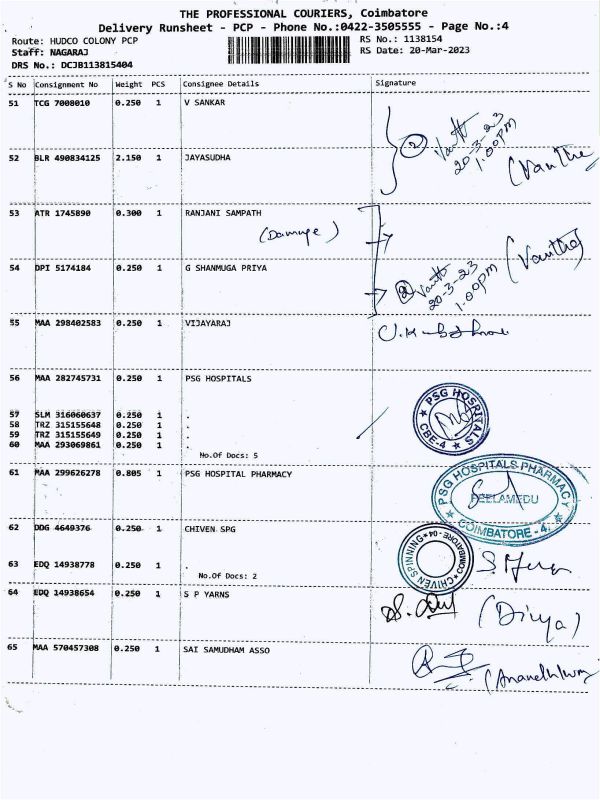 THE PROFESSIONAL COURIERS, Coimbatore
Delivery Runsheet - PCP - Phone No.:0422-3505555 - Page No.:4
Route: HUDCO COLONY PCP RS No.: 1138154
Staff: NAGARAJ RS Date: 20-Mar-2023
DRS No.: DCJB113815404
S No Consignment No Weight PCS Consignee Details Signature
51 TCG 7008010 0.250 1 V SANKAR
2
20-3-23
1.00pm
52 BLR 490834125 2.150 1 JAYASUDHA
53 ATR 1745890 0.300 1 RANJANI SAMPATH
(Damage)
54 DPI 5174184 0.250 1 G SHANMUGA PRIYA
2
20-3-23
1.00pm
55 MAA 298402583 0.250 1 VIJAYARAJ
56 MAA 282745731 0.250 1 PSG HOSPITALS
PSG HOSPITALS
CBE-4
57 SLM 316060637 0.250 1 .
58 TRZ 315155648 0.250 1 .
59 TRZ 315155649 0.250 1 .
60 MAA 293069861 0.250 1 .
No.Of Docs: 5
61 MAA 299626278 0.805 1 PSG HOSPITAL PHARMACY
PSG HOSPITALS PHARMACY
PEELAMEDU
COIMBATORE - 4.
62 DDG 4649376 0.250 1 CHIVEN SPG
CHIVEN SPINNING
COIMBATORE-04
63 EDQ 14938778 0.250 1 .
No.Of Docs: 2
64 EDQ 14938654 0.250 1 S P YARNS
(Divya)
65 MAA 570457308 0.250 1 SAI SAMUDHAM ASSO